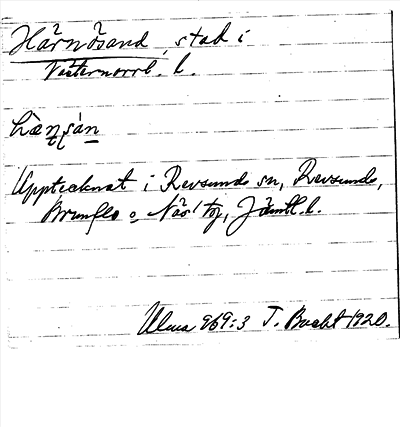 Härnösand, stad i
Västernorrl. l.
hæ̀ɳsán
Upptecknat i Revsunds sn, Revsunds,
Brunflo o Näs tg, Jämtl. l.
Ulma 969:3 T. Bucht 1920.